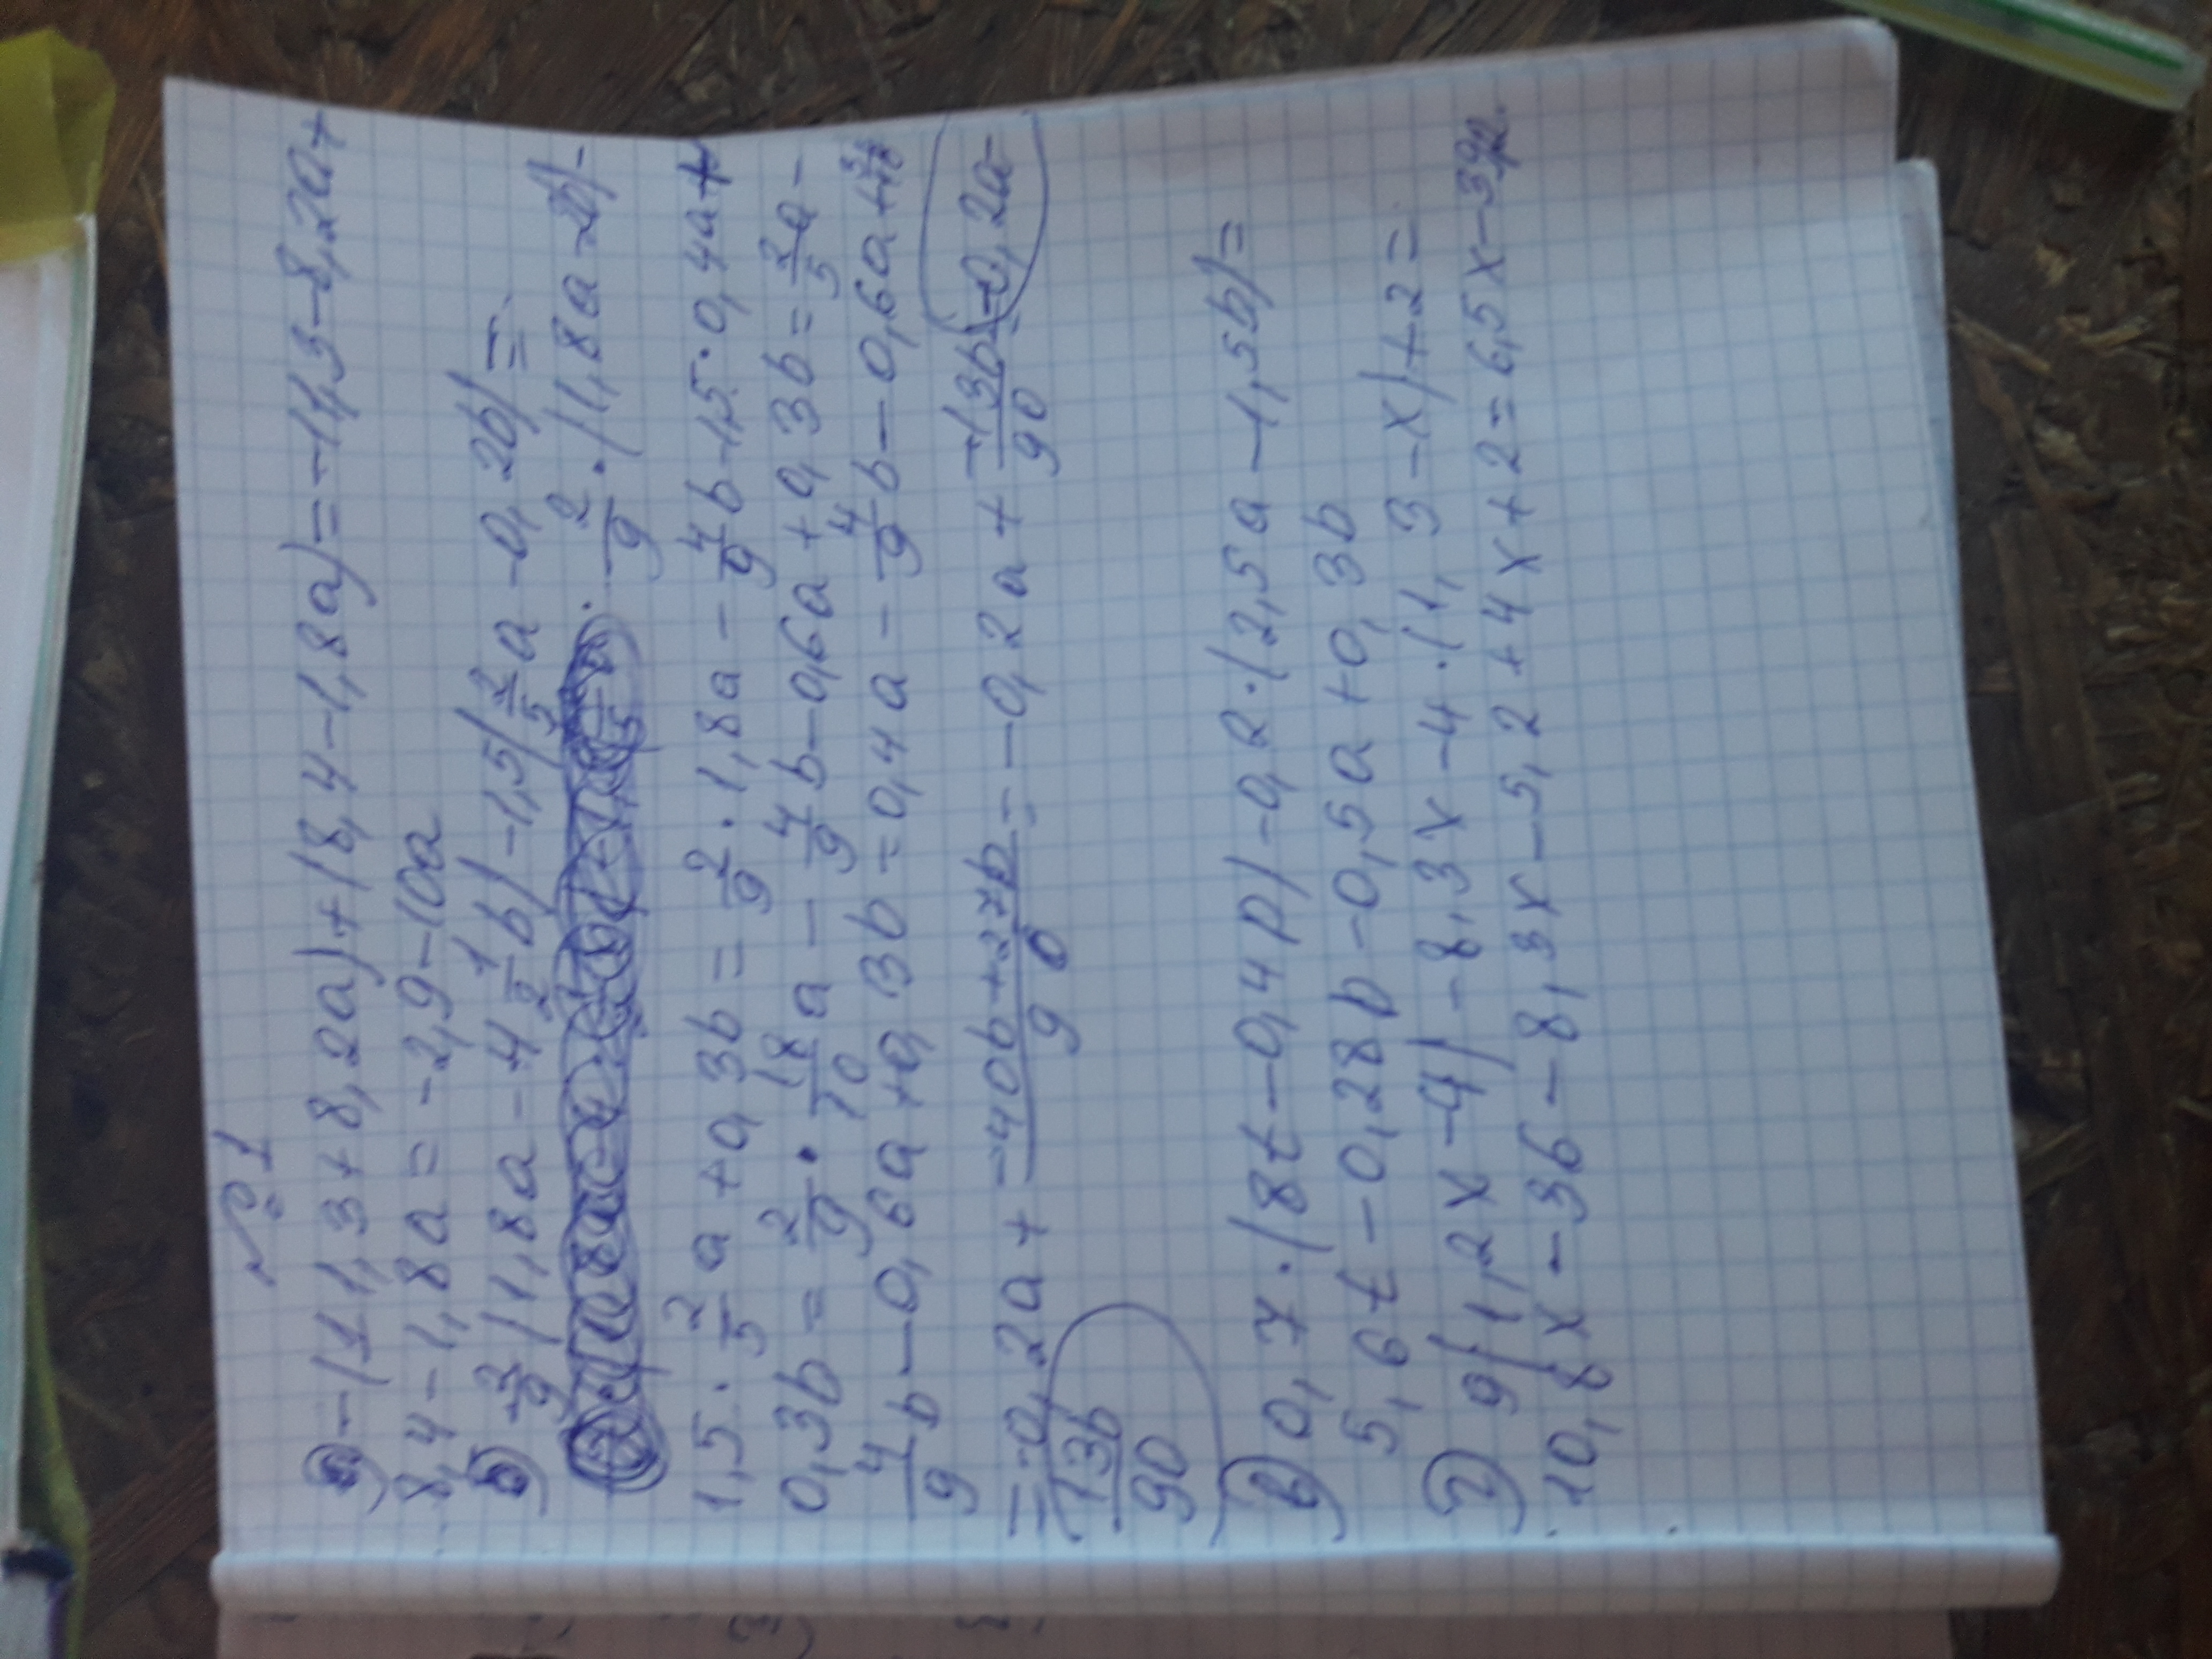 №1
а) -(11,3+8,2a)+(8,4-1,8a)=-11,3-8,2a+
8,4-1,8a=-2,9-10a
б) \frac{2}{9}(1,8a-4\frac{1}{2}b)-1,5(\frac{2}{5}a-0,2b)=
\frac{2}{9}·(1,8a-2b)-
1,5·\frac{2}{5}a+0,3b=\frac{2}{9}·1,8a-\frac{4}{9}b-1,5·0,4a+
0,3b=\frac{2}{9}·\frac{18}{10}a-\frac{4}{9}b-0,6a+0,3b=\frac{2}{5}a-
\frac{4}{9}b-0,6a+0,3b=0,4a-\frac{4}{9}b-0,6a+
=-0,2a+\frac{-40b+27b}{90}=-0,2a+\frac{-13b}{90}=-0,2a-
\frac{13b}{90}
в) 0,7·(8t-0,4p)-0,2·(2,5a-1,5b)=
5,6t-0,28p-0,5a+0,3b
г) 9(1,2x-4)-8,3x-4·(1,3-x)+2=
10,8x-36-8,3x-5,2+4x+2=6,5x-39,2